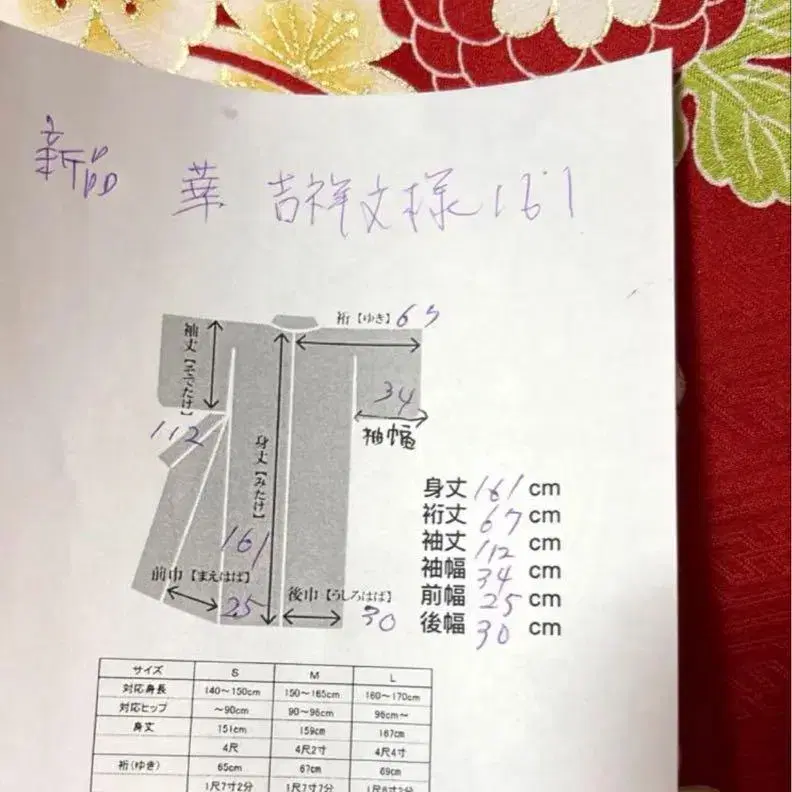 新品 華 吉祥文様 161
裄【ゆき】67
袖丈【そでたけ】
112
34
袖幅
身丈【みたけ】
161
前巾【まえはば】
25
後巾【うしろはば】
30
身丈 161 cm
裄丈 67 cm
袖丈 112 cm
袖幅 34 cm
前幅 25 cm
後幅 30 cm
サイズ S M L
対応身長 140～150cm 150～165cm 160～170cm
対応ヒップ ～90cm 90～96cm 96cm～
身丈 151cm 159cm 167cm
4尺 4尺2寸 4尺4寸
裄(ゆき) 65cm 67cm 69cm
1尺7寸2分 1尺7寸7分 1尺8寸2分